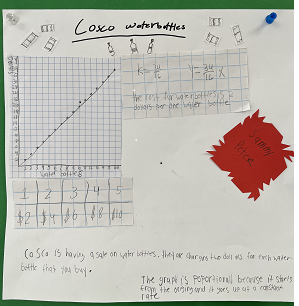 Cosco waterbottles
K=
Y= X
The cost for waterbottles is 2
dollars per one water bottle
water bottles
Sammy
Price
1 2 3 4 5
$2 $4 $6 $8 $10
CoSco is having a sale on water bottles. They are charging two dollars for each water
bottle that you buy.
The graph is Poportional because it starts
from the origin and it goes up at a constant
rate